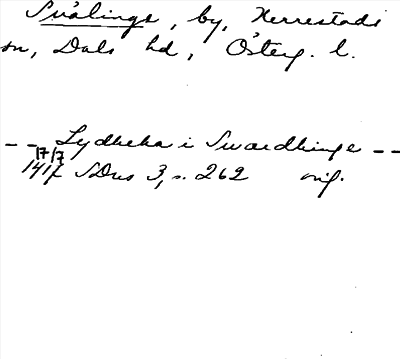 Svälinge, by, Herrestads
sn, Dals hd, Österg. l.
-- Lydheka i Swardhinge --
17/7
1417 SDns 3, s. 262 orig.